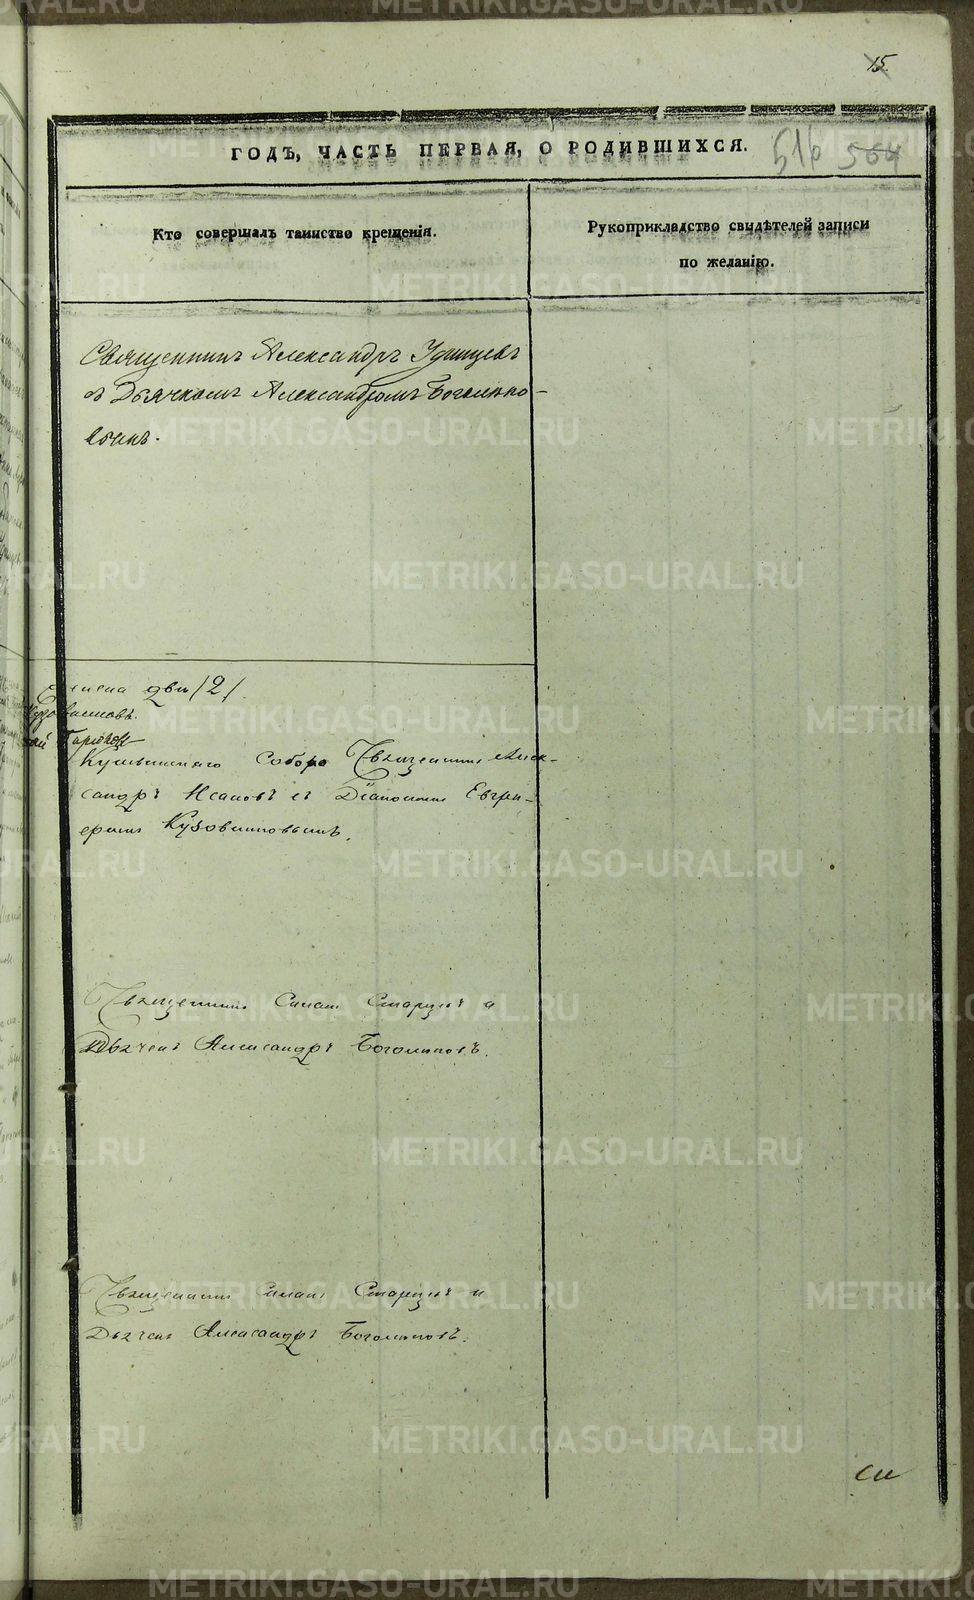 15
ГОДЪ, ЧАСТЬ ПЕРВАЯ, О РОДИВШИХСЯ.
516 564
Кто совершалъ таинство крещенія.
Рукоприкладство свидѣтелей записи
по желанію.
Священникъ Александръ Удинцевъ
съ Дьячкомъ Александромъ Боголѣпо-
вымъ.
двѣ /2/
Кушвинскаго Собора Священникъ Алек-
сандръ съ Діакономъ Евгра-
фомъ Кузовниковымъ.
Священникъ Симонъ Старцевъ и
Дьячекъ Александръ Боголѣповъ.
Священникъ Симонъ Старцевъ и
Дьячекъ Александръ Боголѣповъ.
METRIKI.GASO-URAL.RU